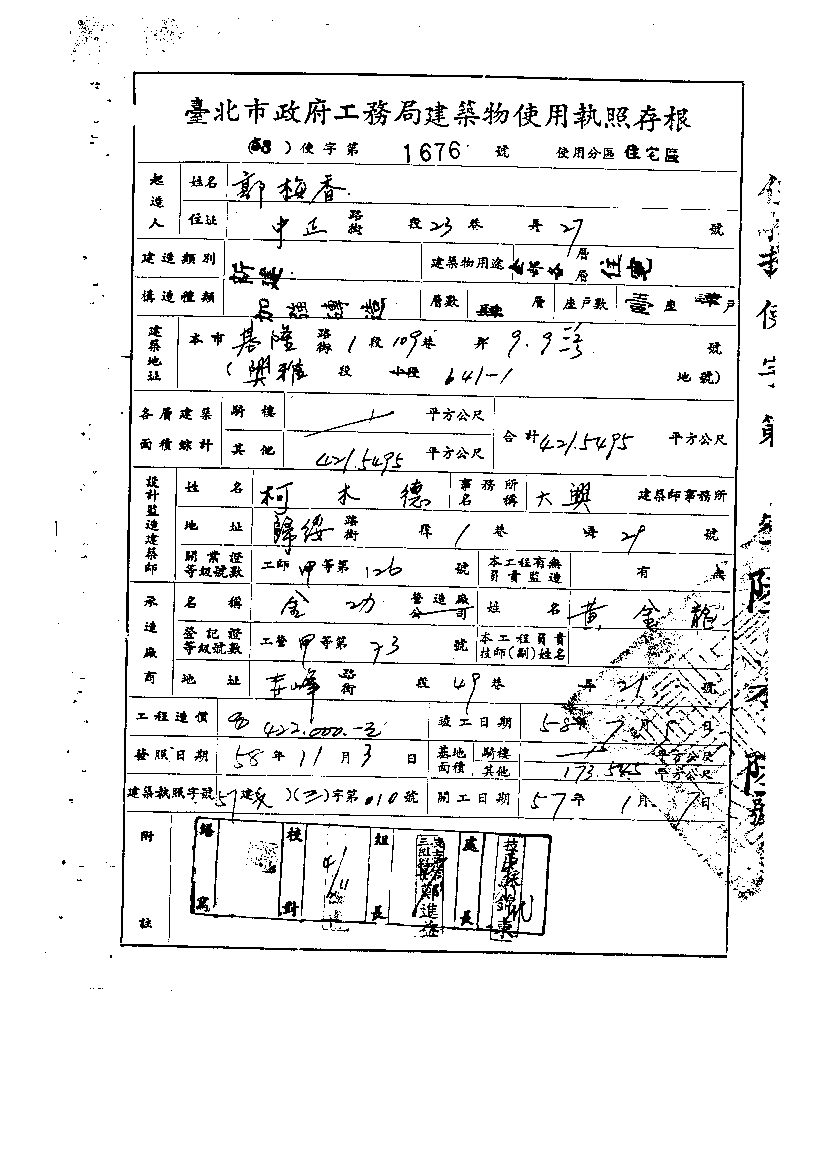 臺北市政府工務局建築物使用執照存根
(58)使字第 1676 號 使用分區 住宅區
起造人 姓名 郭梅香
住址 中正 路街 段 23 巷 弄 27 號
建造類別 新建 建築物用途 層層 住宅
構造種類 加強磚造 層數 肆 層 座戶數 壹 座 戶
建築地址 本市 基隆 路街 1 段 109 巷 弄 9. 9 號
(興雅 段 小段 641-1 地號)
各層建築面積綜計 騎樓 平方公尺 合計 421.5495 平方公尺
其他 421.5495 平方公尺
設計監造建築師 姓名 柯木德 事務所名稱 大興 建築師事務所
地址 歸綏 路街 段 1 巷 弄 29 號
開業證等級號數 工師 甲 等第 126 號 本工程有無負責監造 有 無
承造廠商 名稱 金功 營造廠公司 姓名 黃金龍
登記證等級號數 工營 甲 等第 73 號 本工程負責技師(副)姓名
地址 路街 段 49 巷 弄 21 號
工程造價 422.000.-元 竣工日期 58 年 7 月 5 日
發照日期 58 年 11 月 3 日 基地面積 騎樓 平方公尺
其他 173.545 平方公尺
建築執照字號 57 建 )(三)字第 010 號 開工日期 57 年 1 月 7 日
附註 繕寫 校對 4/11 組長 鄭進 處長